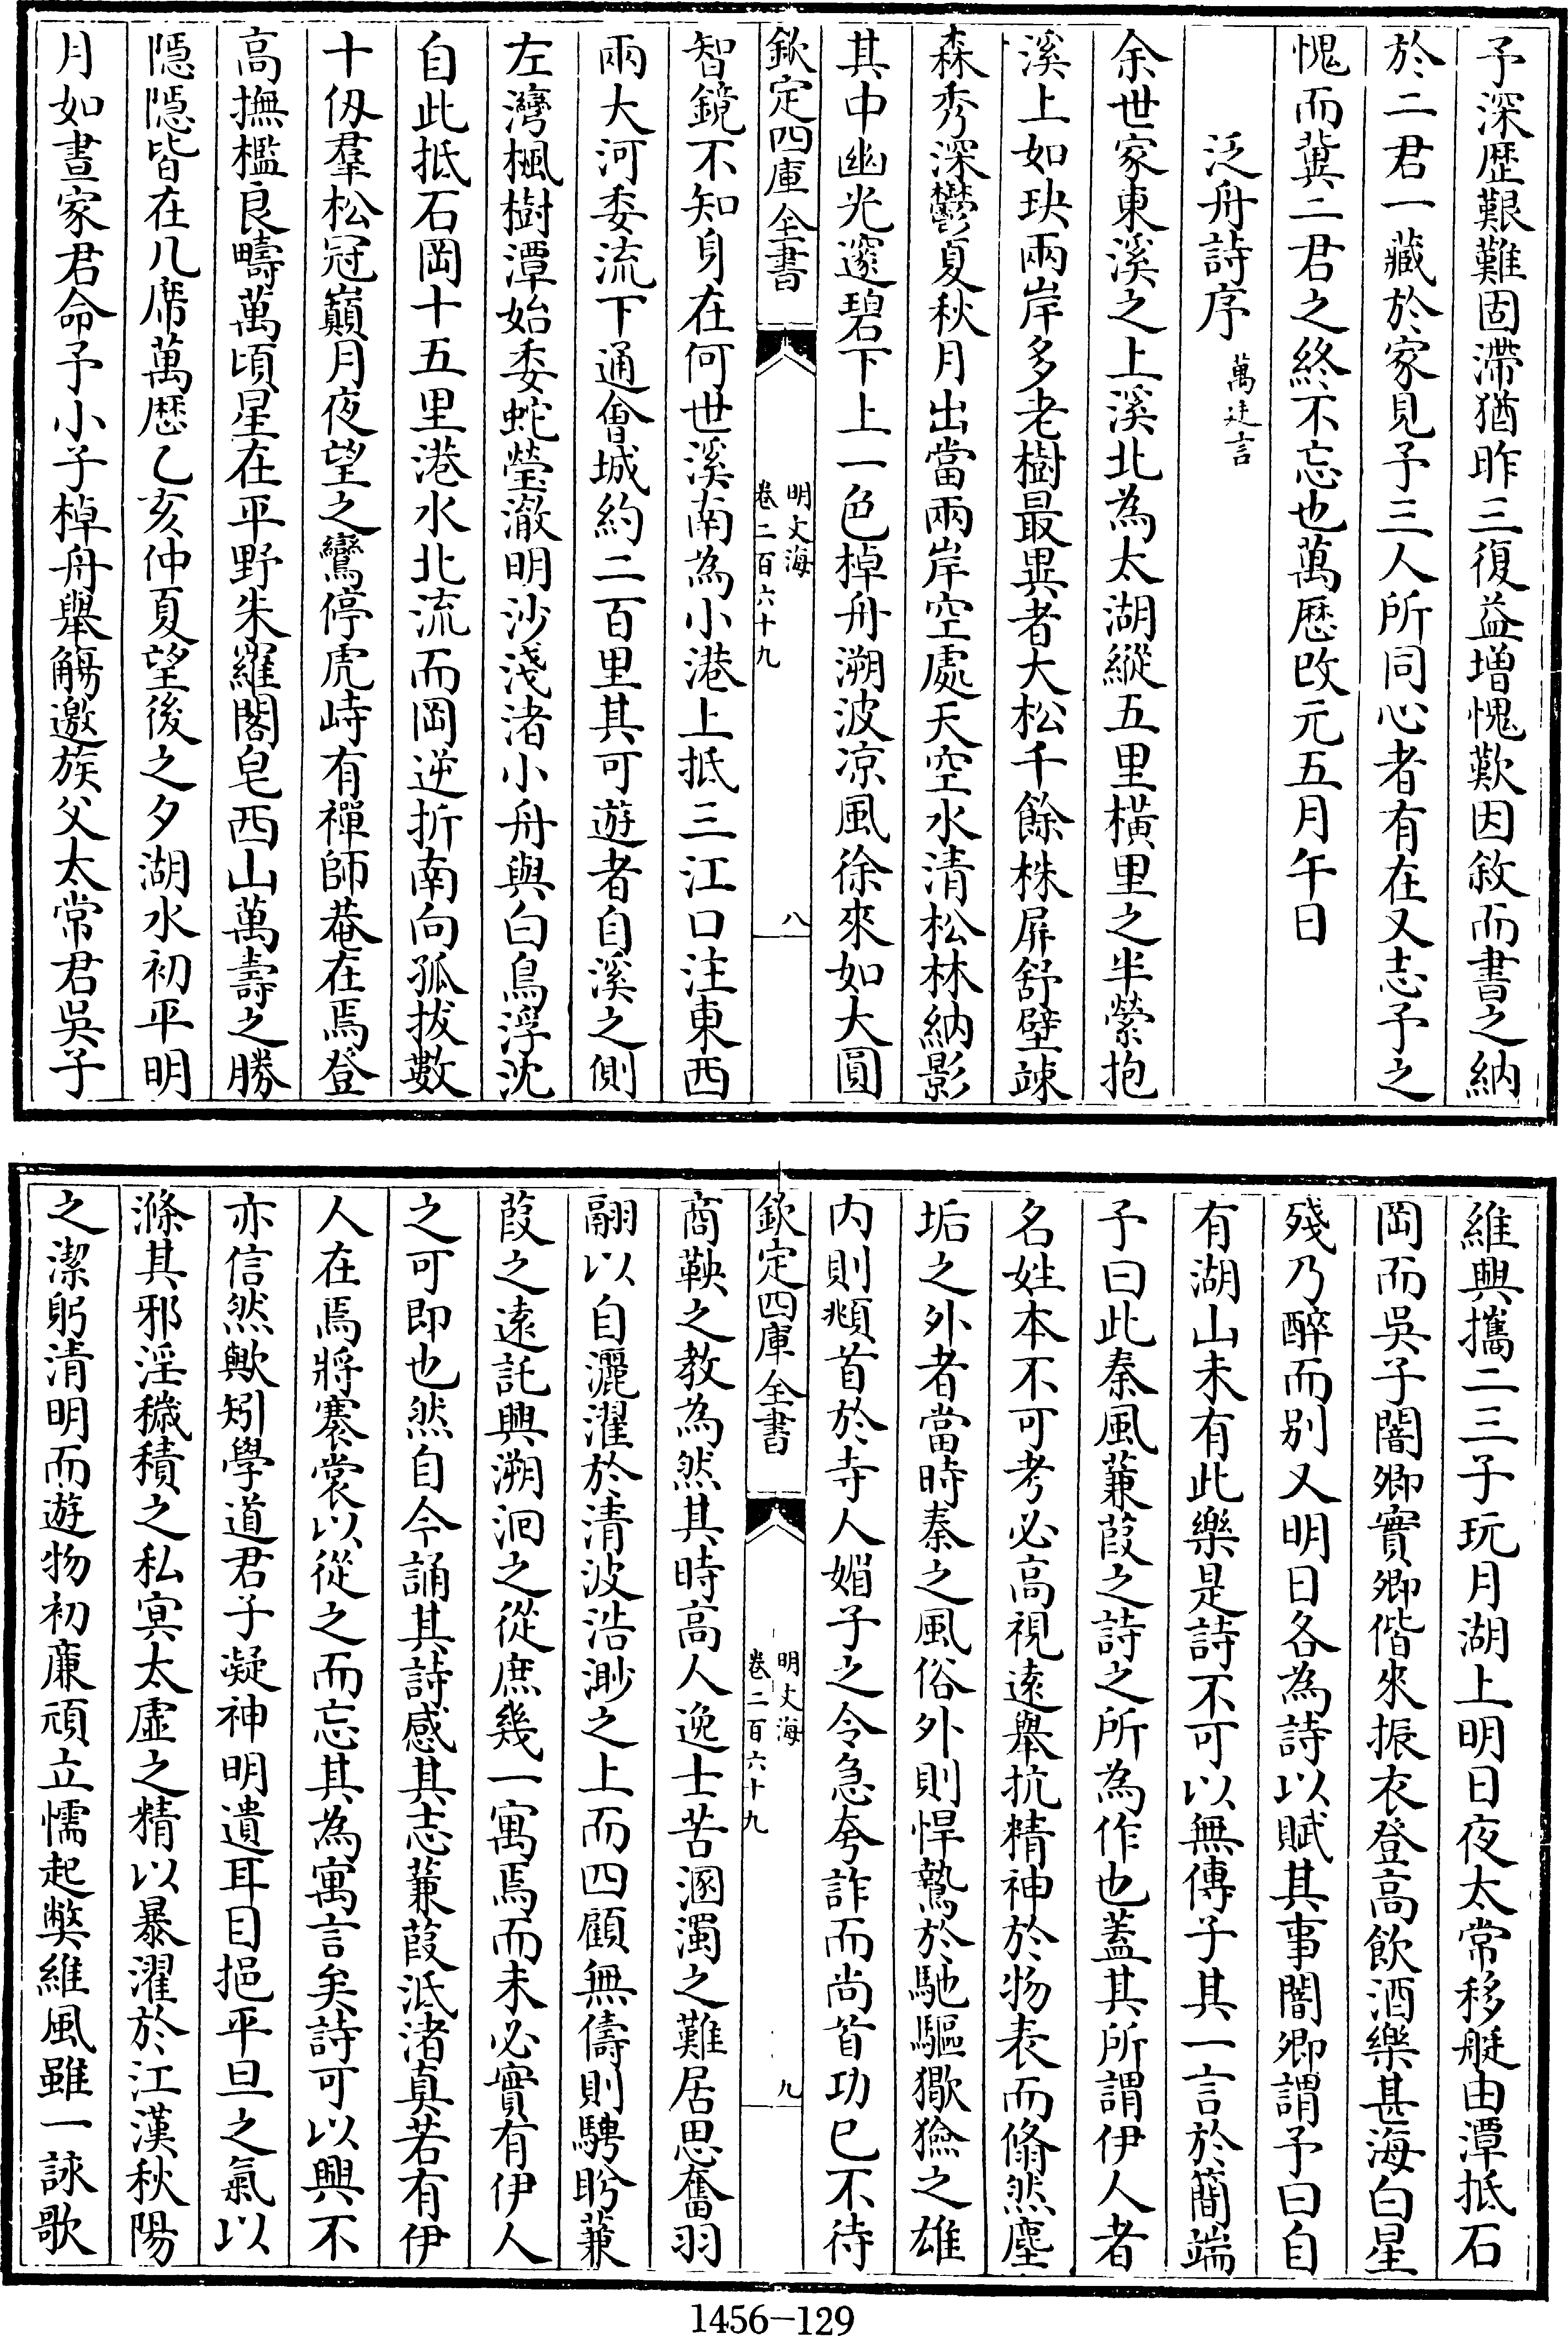 予深歴艱難固滯猶昨三復益增愧歎因敘而書之納
於二君一藏於家見予三人所同心者有在又志予之
愧而冀二君之終不忘也萬歴改元五月午日
泛舟詩序 萬廷言
余世家東溪之上溪北為太湖縱五里橫里之半縈抱
溪上如玦兩岸多老樹最異者大松千餘株屏舒壁竦
森秀深鬱夏秋月出當兩岸空處天空水清松林納影
其中幽光邃碧下上一色棹舟溯波凉風徐來如大圓
欽定四庫全書 明文海 卷二百六十九 八
智鏡不知身在何世溪南為小港上抵三江口注東西
兩大河委流下通會城約二百里其可遊者自溪之側
左灣楓樹潭始委蛇瑩澈明沙淺渚小舟與白鳥浮沈
自此抵石岡十五里港水北流而岡逆折南向孤拔數
十仭羣松冠巔月夜望之鸞停虎峙有禪師菴在焉登
高撫檻良疇萬頃星在平野朱羅閣皂西山萬壽之勝
隱隱皆在几席萬歴乙亥仲夏望後之夕湖水初平明
月如晝家君命予小子棹舟舉觴邀族父太常君吳子
維興攜二三子玩月湖上明日夜太常移艇由潭抵石
岡而吳子闇卿實卿偕來振衣登高飲酒樂甚海白星
殘乃醉而别又明日各為詩以賦其事闇卿謂予曰自
有湖山未有此樂是詩不可以無傳子其一言於簡端
予曰此秦風蒹葭之詩之所為作也蓋其所謂伊人者
名姓本不可考必高視遠舉抗精神於物表而翛然塵
垢之外者當時秦之風俗外則悍鷙於馳驅獫獫之雄
内則頫首於寺人媚子之令急夸詐而尚首功已不待
欽定四庫全書 明文海 卷二百六十九 九
商鞅之教為然其時高人逸士苦溷濁之難居思奮羽
翮以自灑濯於清波浩渺之上而四顧無儔則騁盻蒹
葭之遠託興溯洄之從庶幾一寓焉而未必實有伊人
之可即也然自今誦其詩感其志蒹葭泜渚真若有伊
人在焉將褰裳以從之而忘其為寓言矣詩可以興不
亦信然歟矧學道君子凝神明遺耳目挹平旦之氣以
滌其邪淫穢積之私㝠太虛之精以暴濯於江漢秋陽
之潔躬清明而遊物初廉頑立懦起弊維風雖一詠歌
1456-129